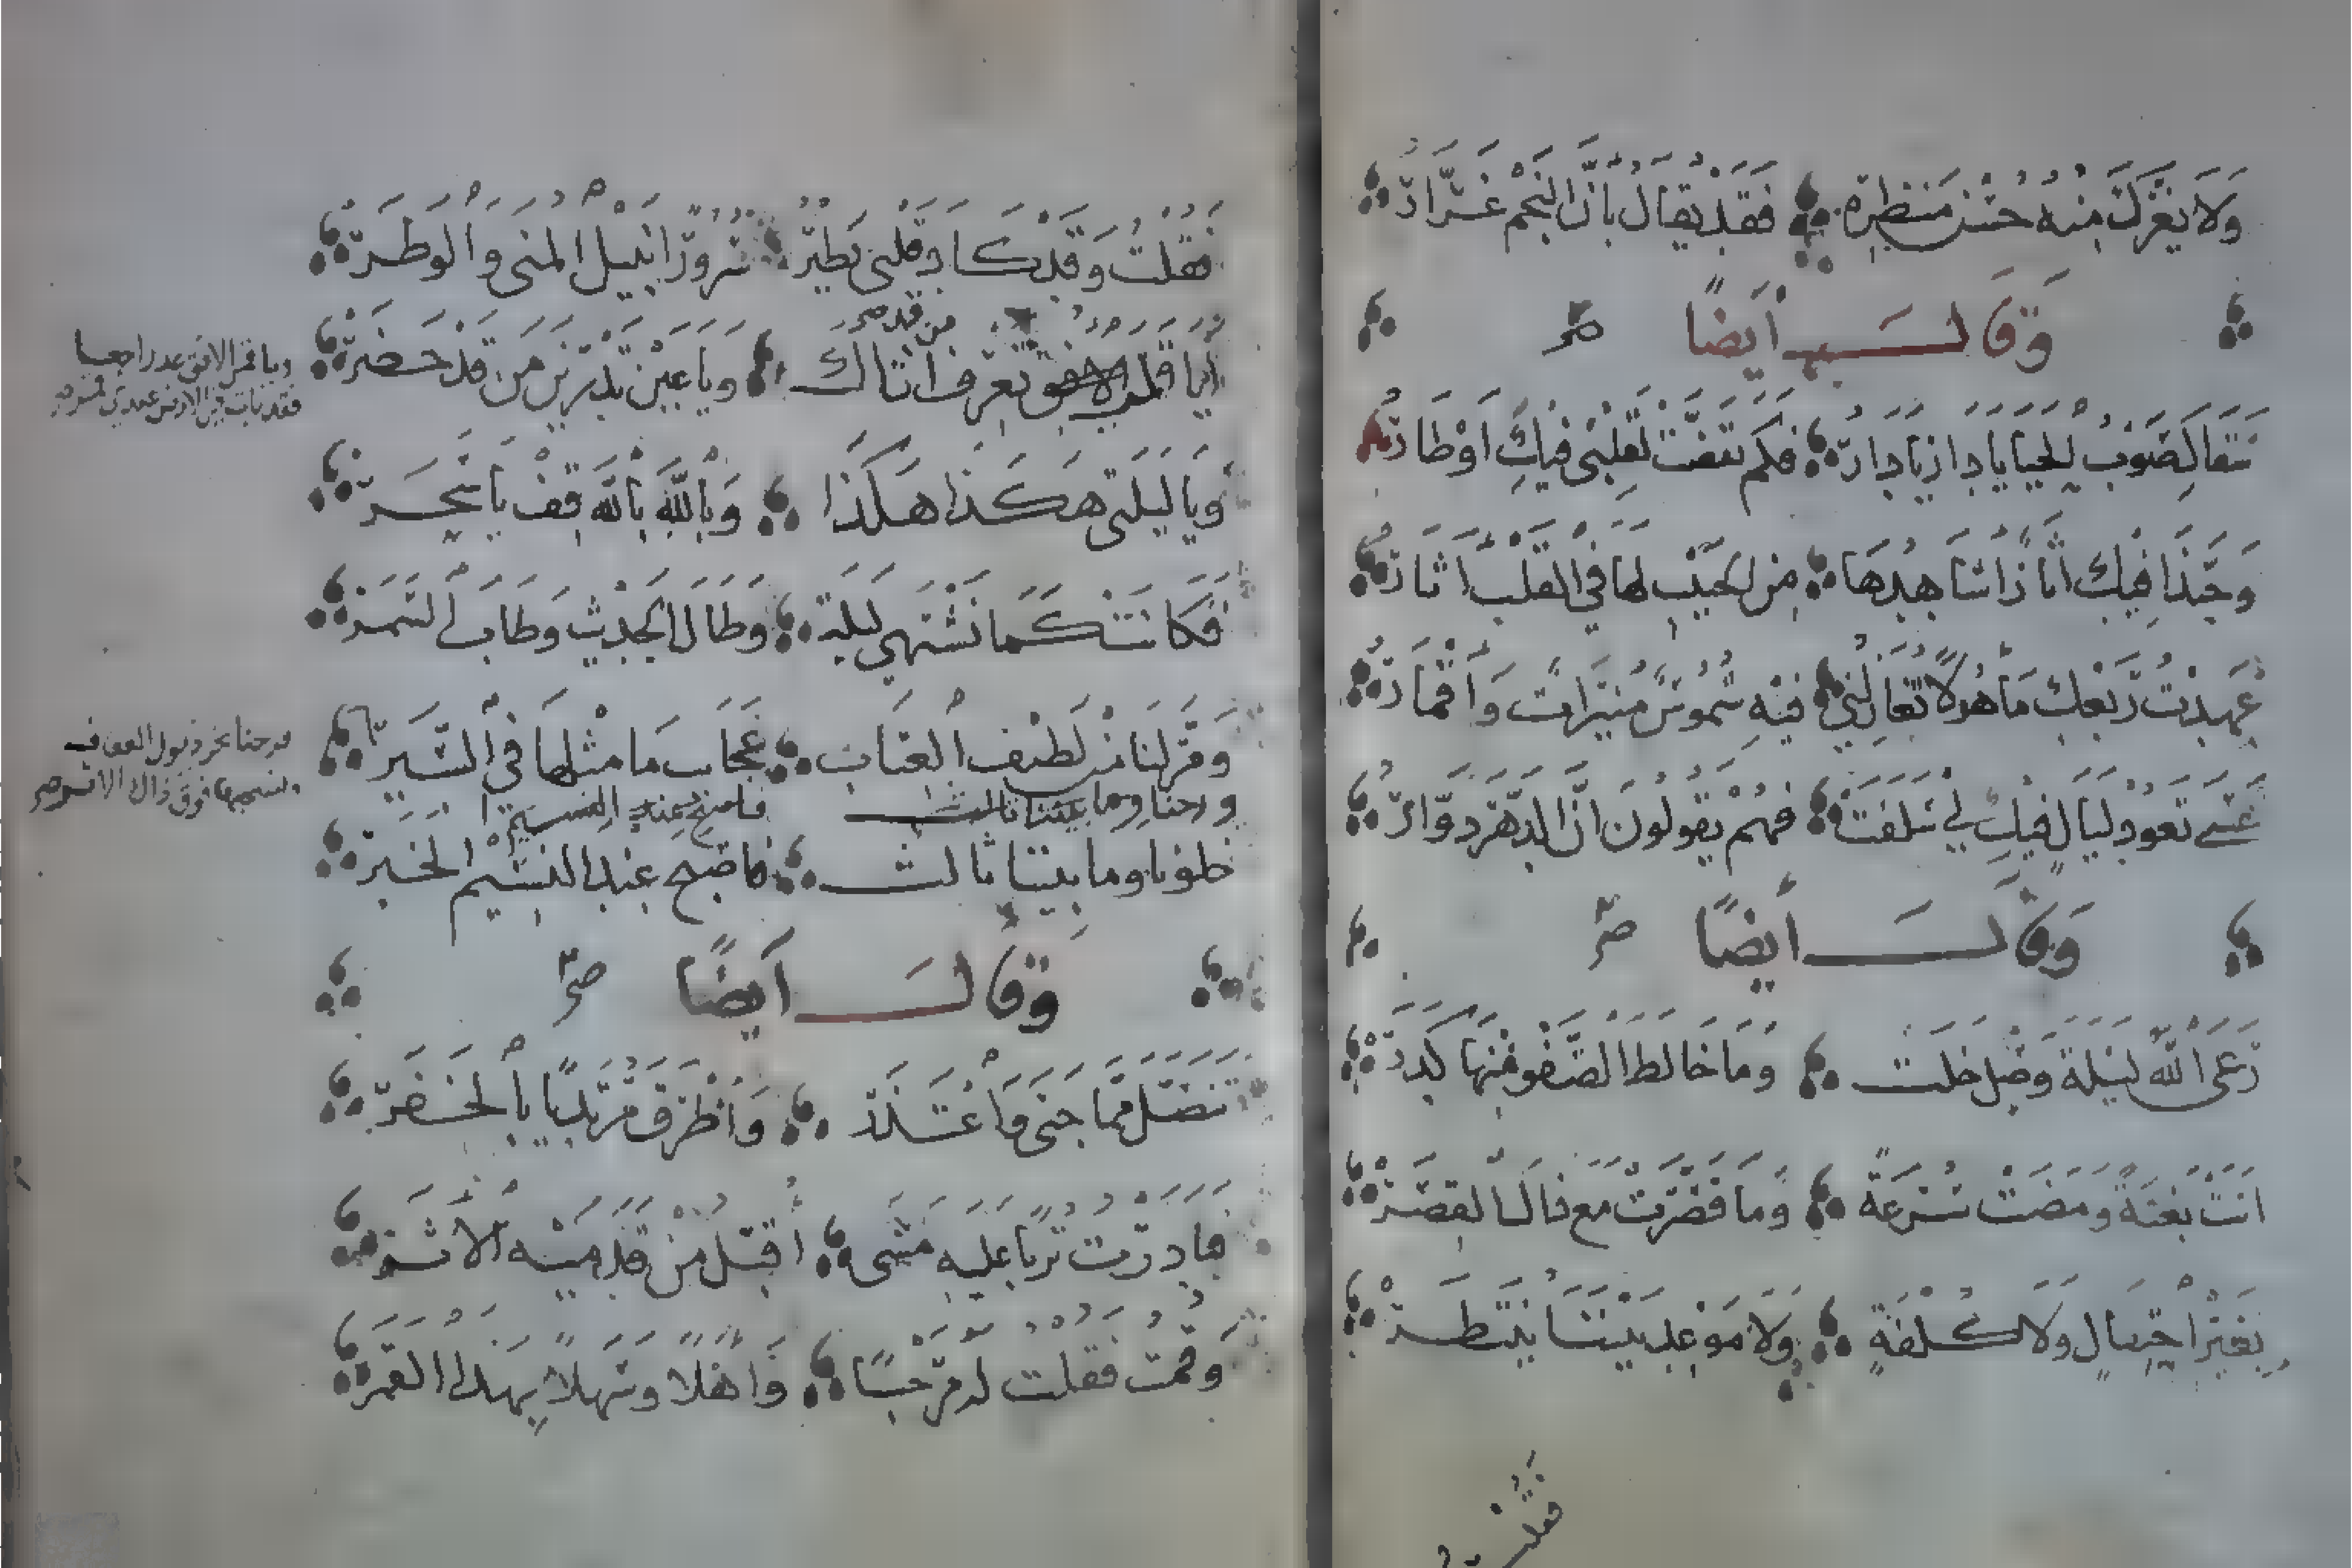 وَلَا يَغُرَّكَ مِنْهُ حُسْنُ مَنْظَرِهِ فَقَدْ يُقَالُ بِأَنَّ النَّجْمَ غَرَّارُ
وَقَالَ أَيْضًا
سَقَاكَ صَوْبُ الحَيَا يَا دَارُ يَا دَارُ فَكَمْ تَقَضَّتْ لِقَلْبِي فِيكِ أَوْطَارُ
وَحَبَّذَا فِيكِ آثَارٌ أُشَاهِدُهَا مِنَ الحَبِيبِ لَهَا فِي القَلْبِ آثَارُ
عَهِدْتُ رَبْعَكِ مَأْهُولًا تُغَازِلُنِي فِيهِ شُمُوسٌ مُنِيرَاتٌ وَأَقْمَارُ
عَسَى تَعُودُ لَيَالٍ فِيكِ لِي سَلَفَتْ فَهُمْ يَقُولُونَ إِنَّ الدَّهْرَ دَوَّارُ
وَقَالَ أَيْضًا
رَعَى اللهُ لَيْلَةَ وَصْلٍ خَلَتْ وَمَا خَالَطَ الصَّفْوَ مِنْهَا كَدَرْ
اتَتْ بَغْتَةً وَمَضَتْ سُرْعَةً وَمَا قَصَّرَتْ مَعَ ذَاكَ القِصَرْ
بِغَيْرِ احْتِيَالٍ وَلَا كُلْفَةٍ وَلَا مَوْعِدٍ بَيْنَنَا يُنْتَظَرْ
فَقُلْتُ
فَقُلْتُ وَقَدْ كَادَ قَلْبِي يَطِيرُ سُرُورًا بِنَيْلِ المُنَى وَالوَطَرْ
أَيَا قَلْبُ تَعْرِفُ مَنْ قَدْ أَتَاكَ وَيَا عَيْنُ تَدْرِينَ مَنْ قَدْ حَضَرْ
ويا قمر الافق عد راجعا
فقد بات في الارض عندي قمر
وَيَا لَيْلَتِي هَكَذَا هَكَذَا وَبِاللهِ بِاللهِ قِفْ يَا سَحَرْ
فَكَانَتْ كَمَا نَشْتَهِي لَيْلَةً وَطَالَ الحَدِيثُ وَطَابَ السَّمَرْ
وَمَرَّ لَنَا مِنْ لَطِيفِ العِتَابِ عَجَائِبُ مَا مِثْلُهَا فِي السِّيَرْ
ورحنا نجر ذيول العفاف
ونسحبها فوق ذاك الاثر
ورحنا وما بيننا ثالث فاصبح عند النسيم
خلونا وما بيننا ثالث فَاصْبَحَ عِنْدَ النَّسِيمِ الخَبَرْ
وَقَالَ أَيْضًا
تَنَصَّلَ مِمَّا جَنَى وَاعْتَذَرْ وَأَطْرَقَ مُرْتَدِيًا بِالخَفَرْ
فبَادَرْتُ تُرْبًا عَلَيْهِ مَشَى أُقَبِّلُ مِنْ قَدَمَيْهِ الأَثَرْ
وَقُمْتُ فَقُلْتُ لَهُ مَرْحَبًا وَأَهْلًا وَسَهْلًا بِهَذَا القَمَرْ